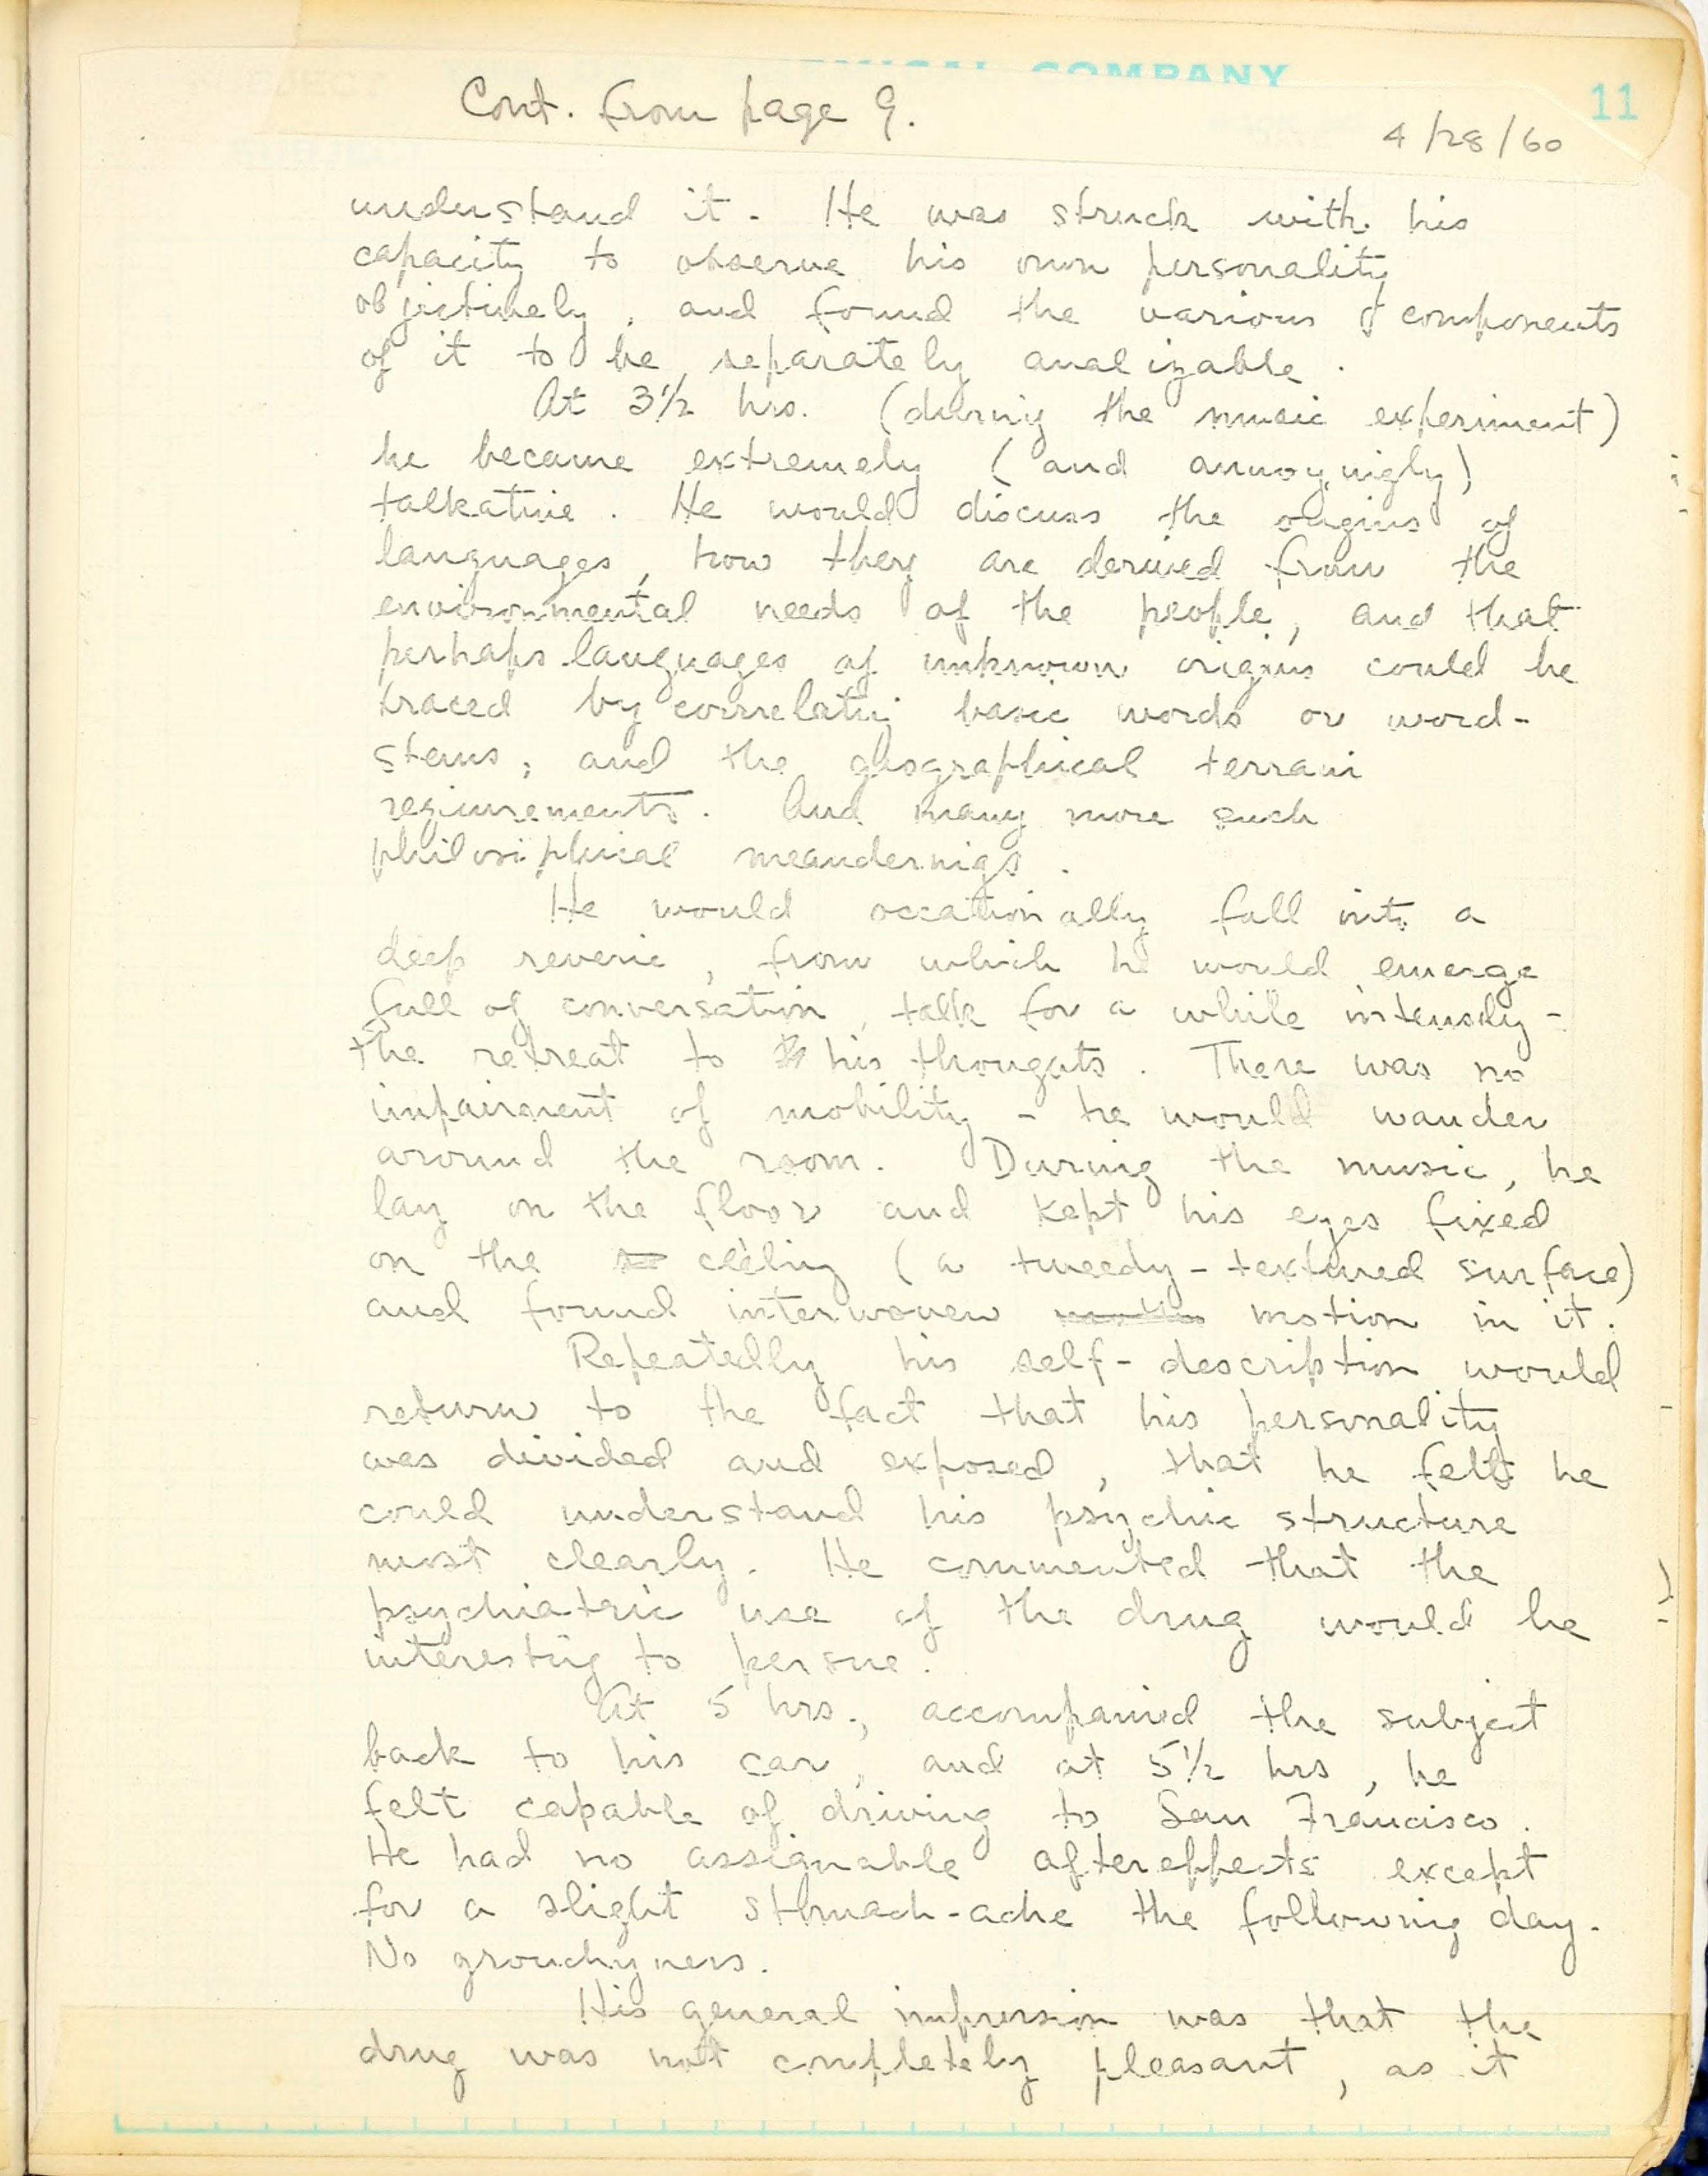 COMPANY
11
Cont. from page 9.
4/28/60
understand it. He was struck with his
capacity to observe his own personality
objectively, and found the various components
of it to be separately analizable.
At 3½ hrs. (during the music experiment)
he became extremely (and annoyingly)
talkative. He would discuss the origins of
languages, how they are derived from the
environmental needs of the people, and that
perhaps languages of unknown origins could be
traced by correlating basic words or word-
stems, and the geographical terrain
requirements. And many more such
philosiphical meanderings.
He would occationally fall into a
deep reverie, from which he would emerge
full of conversation, talk for a while intensely -
the retreat to his thougats. There was no
impairment of mobility - he would wander
around the room. During the music, he
lay on the floor and kept his eyes fixed
on the ceeling (a tweedy-textured surface)
and found interwoven motion in it.
Repeatedly his self-description would
return to the fact that his personality
was divided and exposed, that he felt he
could understand his psychic structure
most clearly. He commented that the
psychiatric use of the drug would be
interesting to persue.
At 5 hrs., accompanied the subject
back to his car, and at 5½ hrs, he
felt capable of driving to San Francisco.
He had no assignable aftereffects except
for a slight stomach-ache the following day.
No grouchyness.
His general impression was that the
drug was not completely pleasant, as it